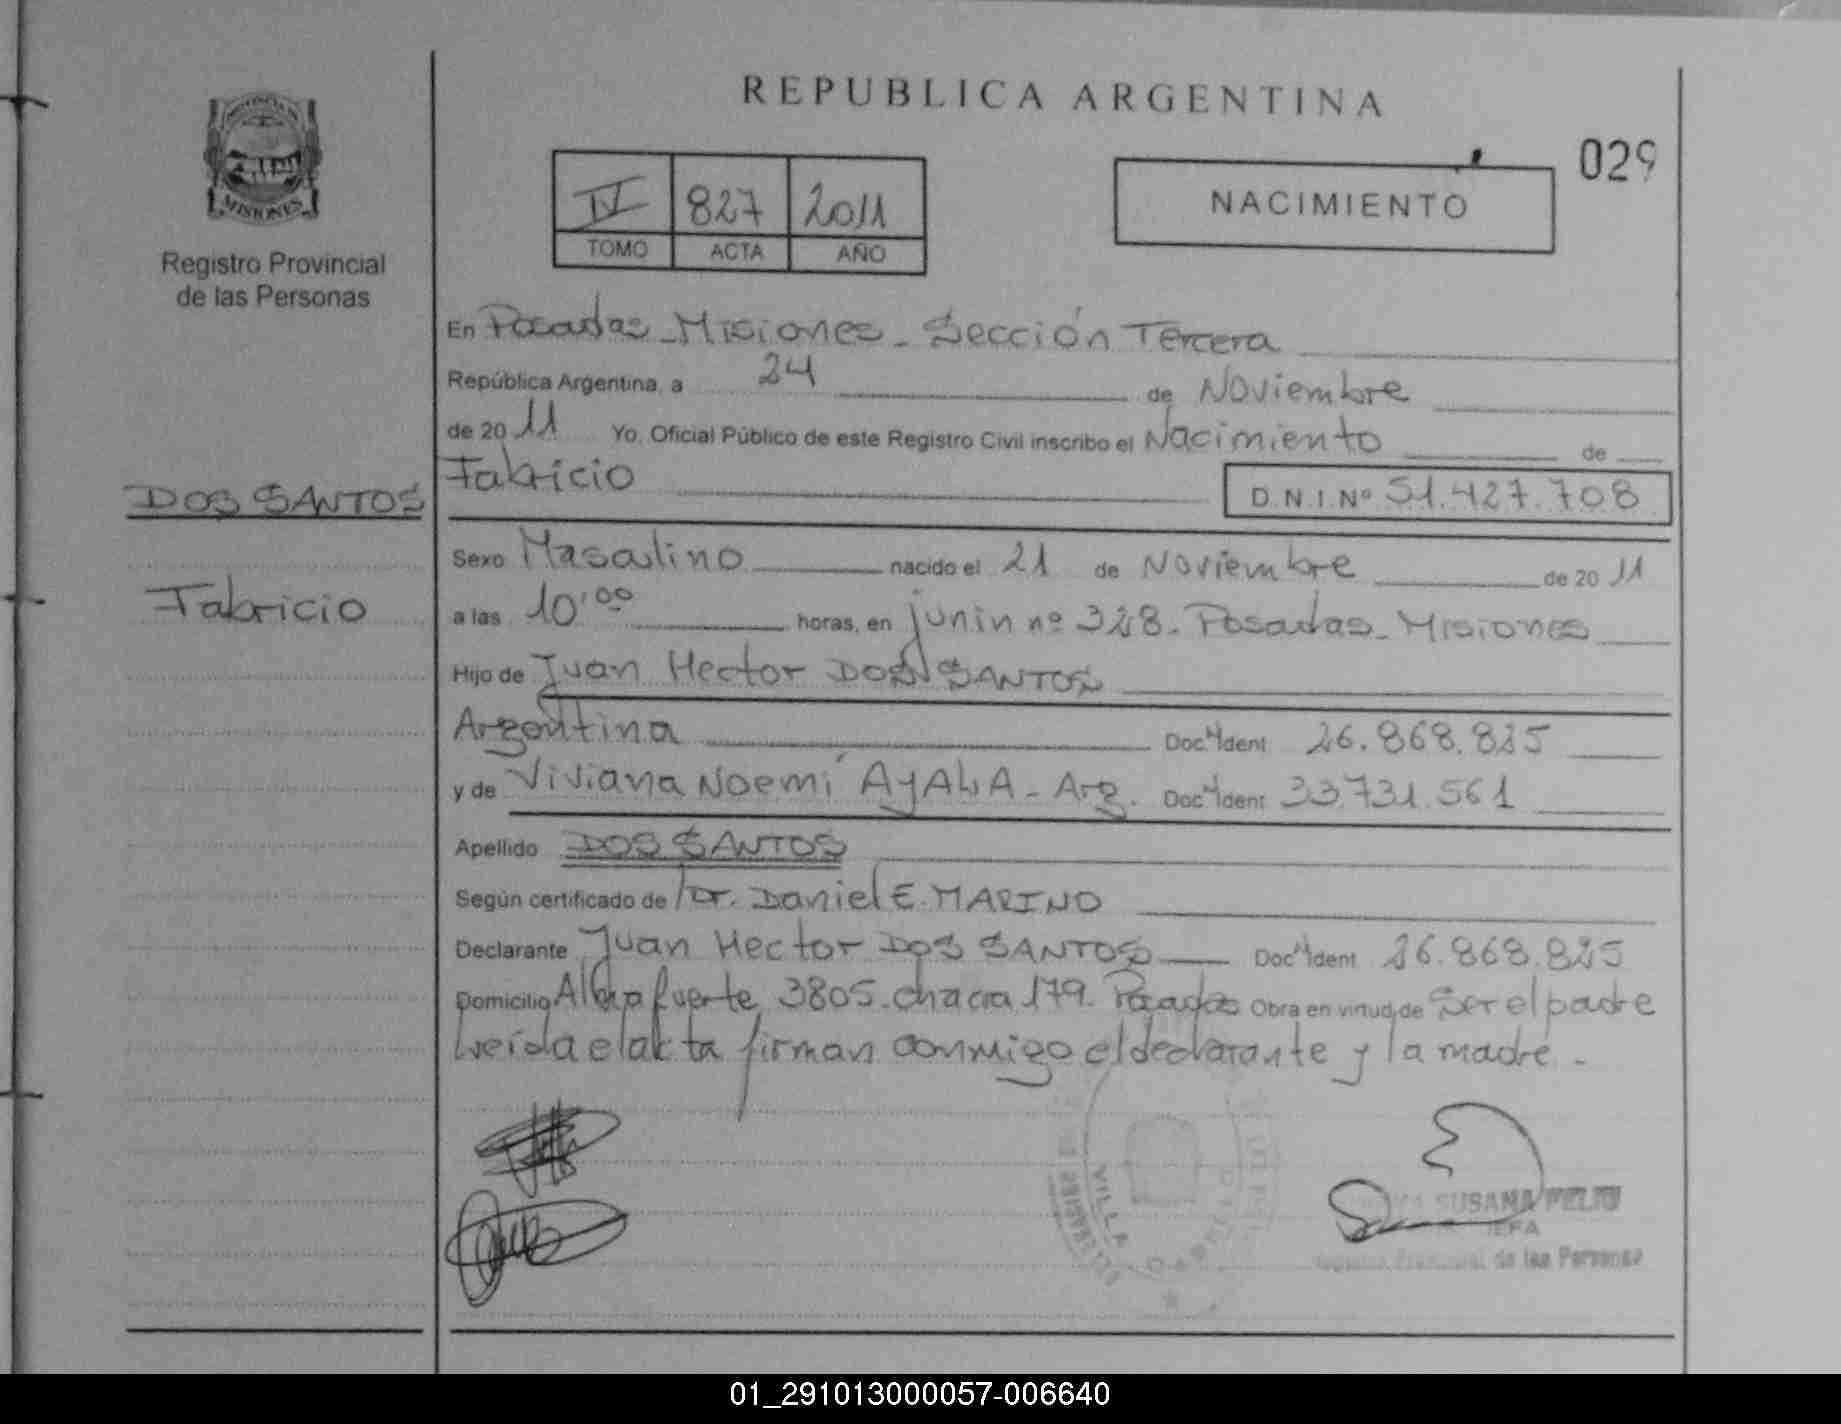 REPUBLICA ARGENTINA
029
IV 827 2011
TOMO ACTA AÑO
NACIMIENTO
MISIONES
Registro Provincial
de las Personas
DOS SANTOS
Fabricio
En Posadas - Misiones - Sección Tercera
República Argentina, a 24 de Noviembre
de 2011 Yo, Oficial Público de este Registro Civil inscribo el Nacimiento de
Fabricio D.N.I. Nº 51.427.708
Sexo Masculino nacido el 21 de Noviembre de 2011
a las 10:00 horas, en junin nº 328. Posadas - Misiones
Hijo de Juan Hector DOS SANTOS
Argentina Doc. Ident 26.868.825
y de Viviana Noemí AYALA - Arg. Doc. Ident 33.731.561
Apellido DOS SANTOS
Según certificado de Dr. Daniel E. MARINO
Declarante Juan Hector DOS SANTOS Doc. Ident 26.868.825
Domicilio 3805. chacra 179. Posadas Obra en virtud de Ser el padre
Leída el acta firman conmigo el declarante y la madre -
VILLA CABELLO
SUSANA FELIU
JEFA
Registro Provincial de las Personas
01_291013000057-006640